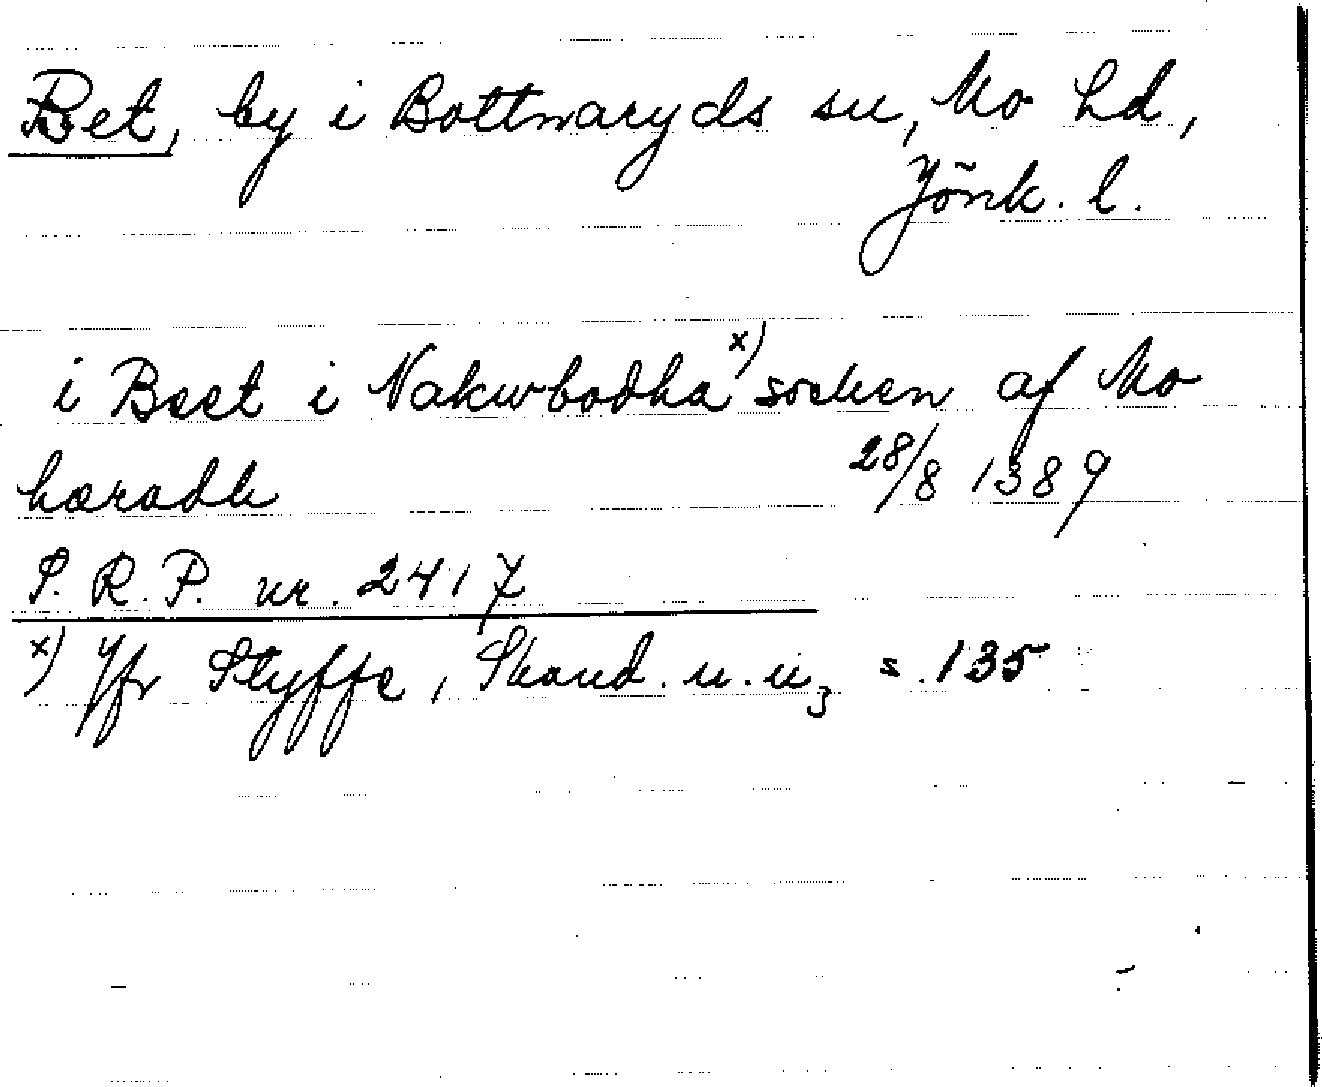 Bet, by i Bottnaryds sn, Mo hd,
Jönk. l.
i Beet i Nakwbodha x) socken af Mo
häradh 28/8 1389
S. R. P. nr. 2417
x) Jfr Styffe, Skand. u. u3 s. 135